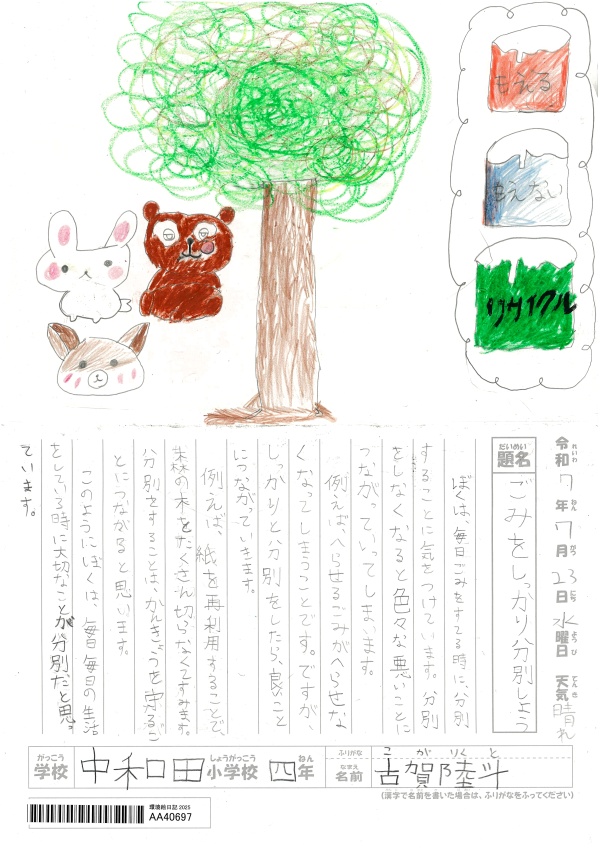 もえる
もえない
リサイクル
令和7年7月23日水曜日 天気晴れ
れいわ ねん がつ にち ようび てんき
だいめい
題名
ごみをしっかり分別しよう
ぼくは、毎日ごみをすてる時に、分別
することに気をつけています。分別
をしなくなると色々な悪いことに
つながっていってしまいます。
例えば、へらせるごみがへらせな
くなってしまうことです。ですが、
しっかりと分別をしたら、良いこと
につながっていきます。
例えば、紙を再利用することで、
森の木をたくさん切らなくてすみます。
分別をすることは、かんきょうを守るこ
とにつながると思います。
このようにぼくは、毎日毎日の生活
をしている時に大切なことが分別だと思っ
ています。
がっこう しょうがっこう ねん
学校 中和田小学校 四年
ふりがな こがりくと
なまえ
名前 古賀陸斗
(漢字で名前を書いた場合は、ふりがなをふってください)
環境絵日記 2025
AA40697